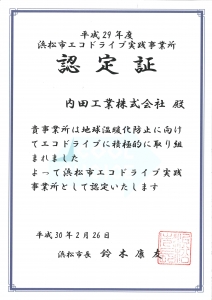 平成29年度
浜松市エコドライブ実践事業所
認定証
内田工業株式会社 殿
貴事業所は地球温暖化防止に向け
てエコドライブに積極的に取り組
まれました
よって浜松市エコドライブ実践
事業所として認定いたします
平成30年2月26日
浜松市長 鈴木康友